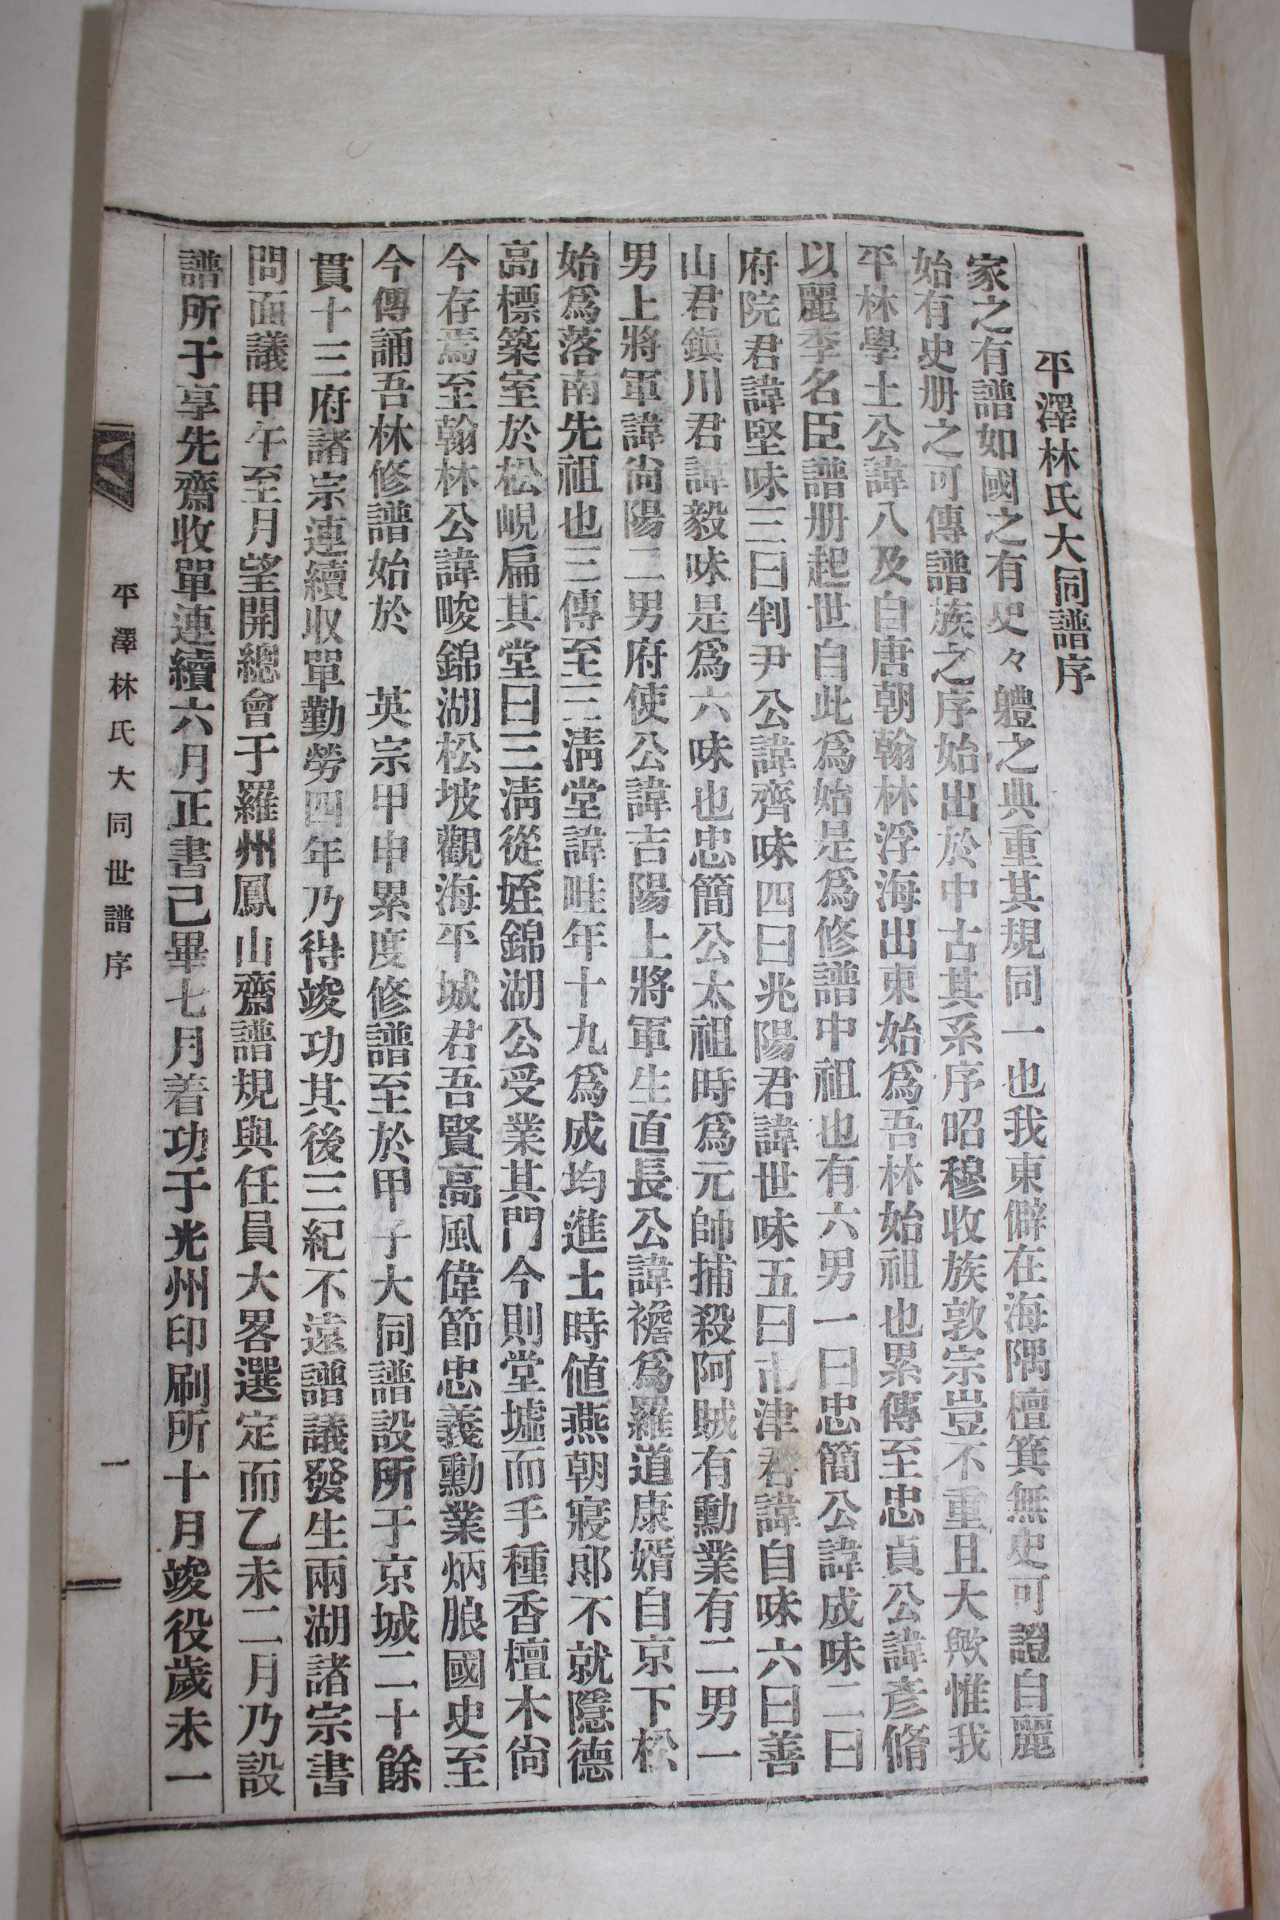 平澤林氏大同譜序
家之有譜如國之有史々軆之典重其規同一也我東僻在海隅檀箕無史可證自麗
始有史册之可傳譜族之序始出於中古其系序昭穆收族敦宗豈不重且大歟惟我
平林學士公諱八及自唐朝翰林浮海出東始爲吾林始祖也累傳至忠貞公諱彦脩
以麗季名臣譜册起世自此爲始是爲修譜中祖也有六男一曰忠簡公諱成味二曰
府院君諱堅味三曰判尹公諱齊味四曰兆陽君諱世味五曰 津君諱自味六曰善
山君鎭川君諱毅味是爲六味也忠簡公太祖時爲元帥捕殺阿賊有勳業有二男一
男上將軍諱尙陽二男府使公諱吉陽上將軍生直長公諱襜爲羅道康婿自京下松
始爲落南先祖也三傳至三淸堂諱畦年十九爲成均進士時値燕朝寢郞不就隱德
高標築室於松峴扁其堂曰三淸從姪錦湖公受業其門今則堂墟而手種香檀木尙
今存焉至翰林公諱畯錦湖松坡觀海平城君吾賢高風偉節忠義勳業炳烺國史至
今傳誦吾林修譜始於 英宗甲申累度修譜至於甲子大同譜設所于京城二十餘
貫十三府諸宗連續收單勤勞四年乃得竣功其後三紀不遠譜議發生兩湖諸宗書
問面議甲午至月望開總會于羅州鳳山齋譜規與任員大畧選定而乙未二月乃設
譜所于享先齋收單連續六月正書己畢七月着功于光州印刷所十月竣役歲未一
平澤林氏大同世譜序
一